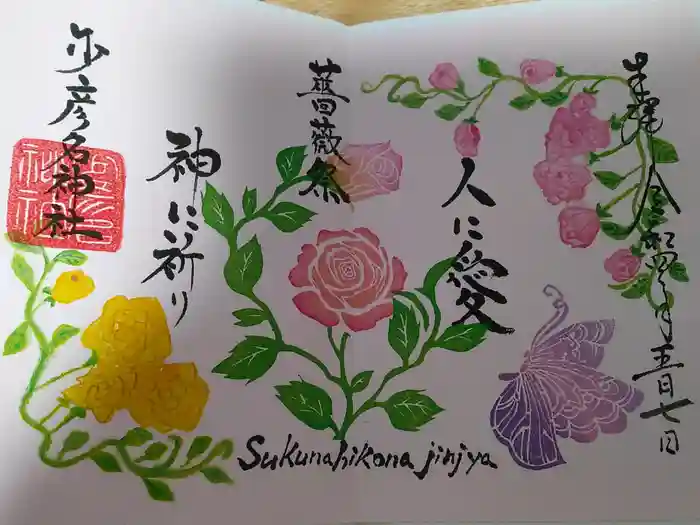 奉拝 令和四年五月七日
人に愛
薔薇祭
神に祈り
少彦名神社
Sukunahikona jinjya